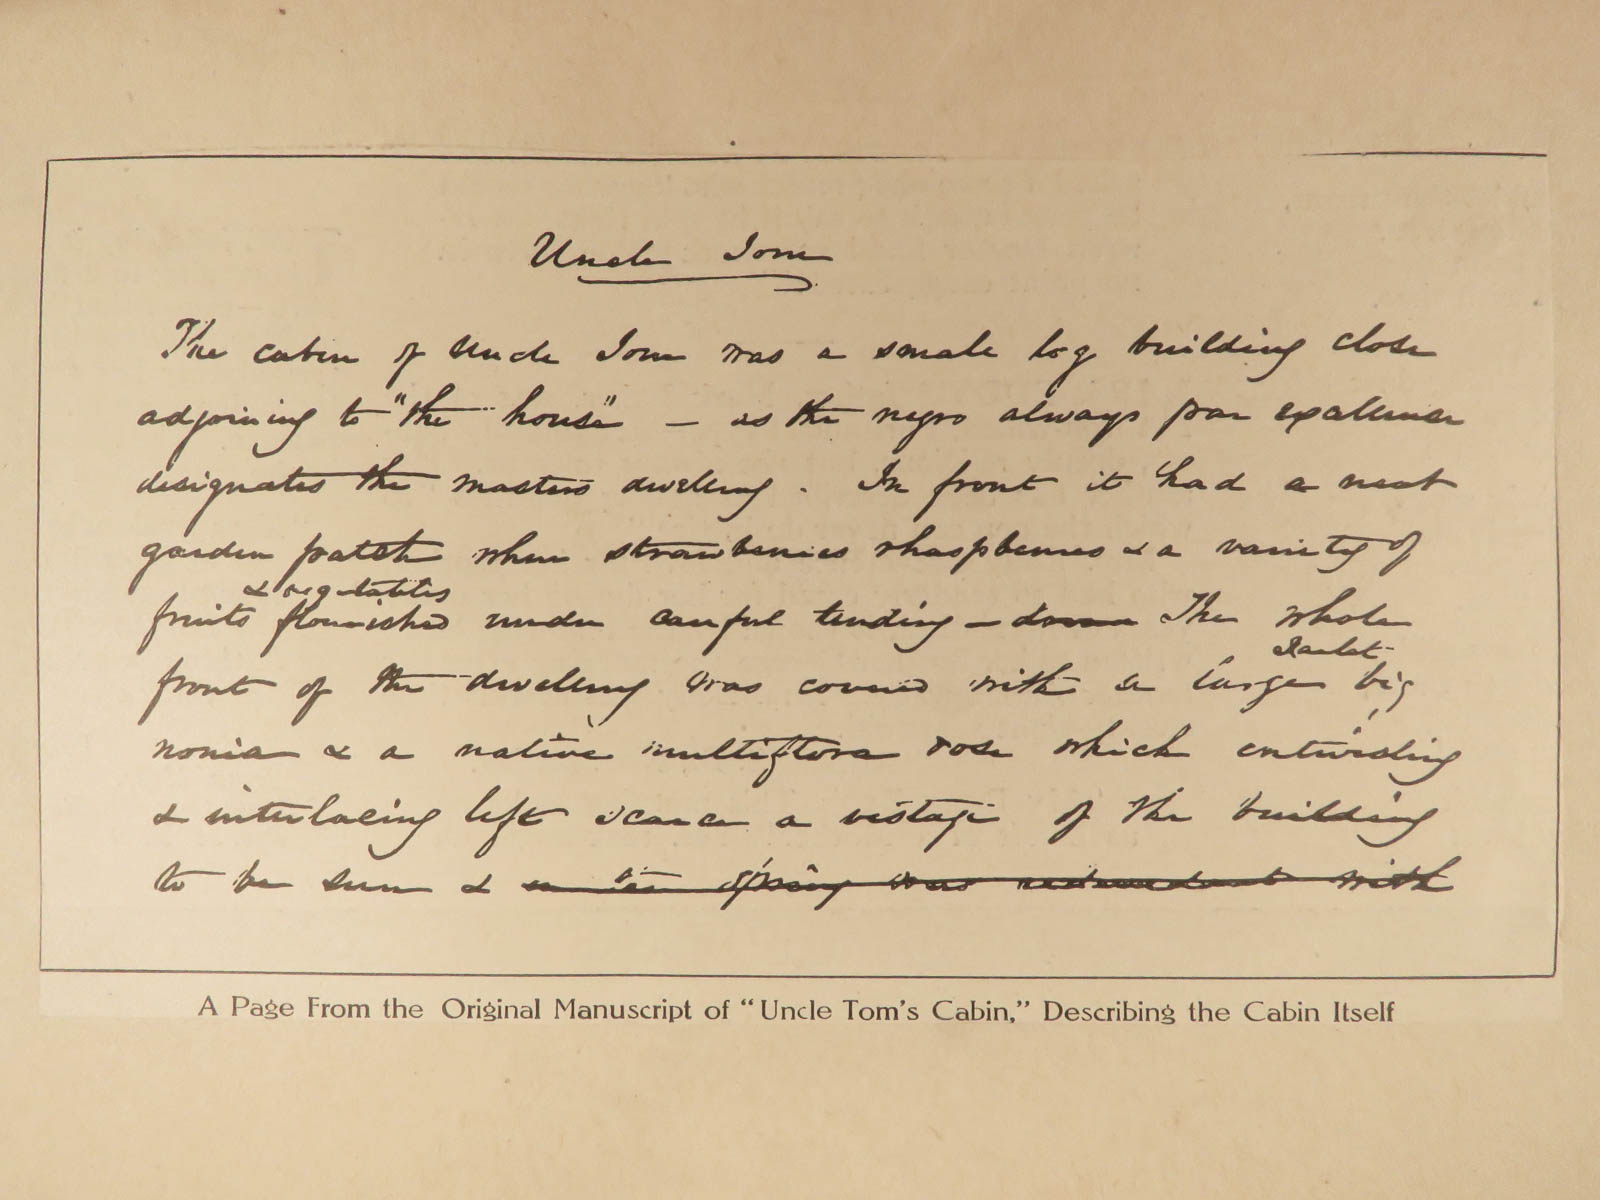 Uncle Tom
The cabin of Uncle Tom was a small log building close
adjoining to "the house" — as the negro always par excellence
designates the masters dwelling. In front it had a neat
garden patch where strawberries rhaspberries & a variety of
& vegetables
fruits flourished under careful tending — down The whole
scarlet
front of the dwelling was covered with a large big
nonia & a native multiflora rose which entwisting
& interlacing left scarce a vestage of the building
to be seen & in spring was redundant with
A Page From the Original Manuscript of "Uncle Tom's Cabin," Describing the Cabin Itself